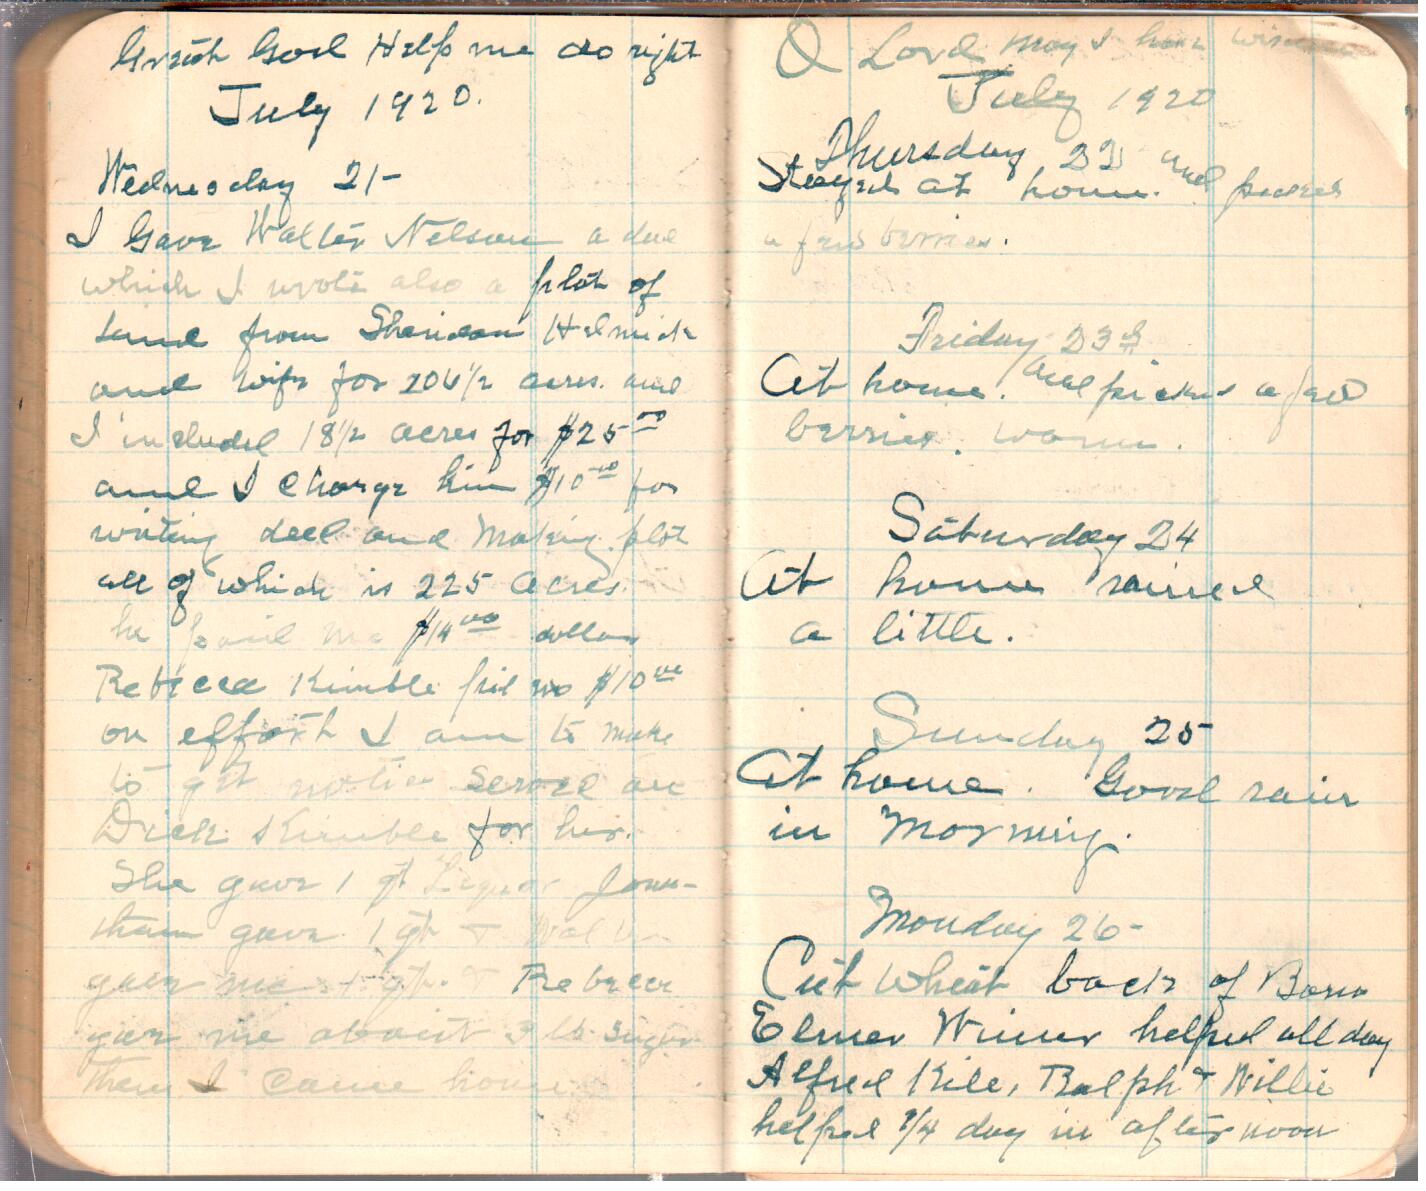 Great God Help me do right
July 1920.
Wednesday 21-
I Gave Walter Nelson a deed
which I wrote also a plot of
land from Sheridan Helmick
and wife for 206 1/2 acres. and
I included 18 1/2 acres for $25.00
and I charge him $10.00 for
writing deed and Making plot
all of which is 225 acres.
he paid me $14.00 dollars
Rebecca Kimble paid me $10.00
on effort I am to make
to get notice served on
Dick Kimble for her.
She gave 1 qt Liquor Jona-
than gave 1 qt + Walter
gave me 1 qt. + Rebecca
gave me about 3 lb sugar
then I came home
O Lord may I have
July 1920
Thursday 22
Stayed at home. and picked
a few berries.
Friday 23d
At home. and picked a few
berries. warm.
Saturday 24
At home rained
a little.
Sunday 25
At home. Good rain
in Morning.
Monday 26-
Cut Wheat back of Barn
Elmer Wimer helped all day
Alfred Kile, Ralph + Willie
helped 3/4 day in afternoon